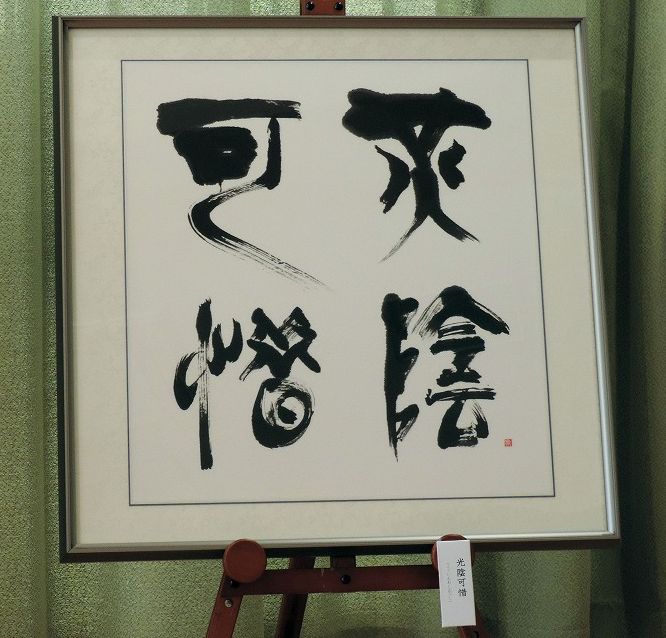 光陰
可惜
光陰可惜